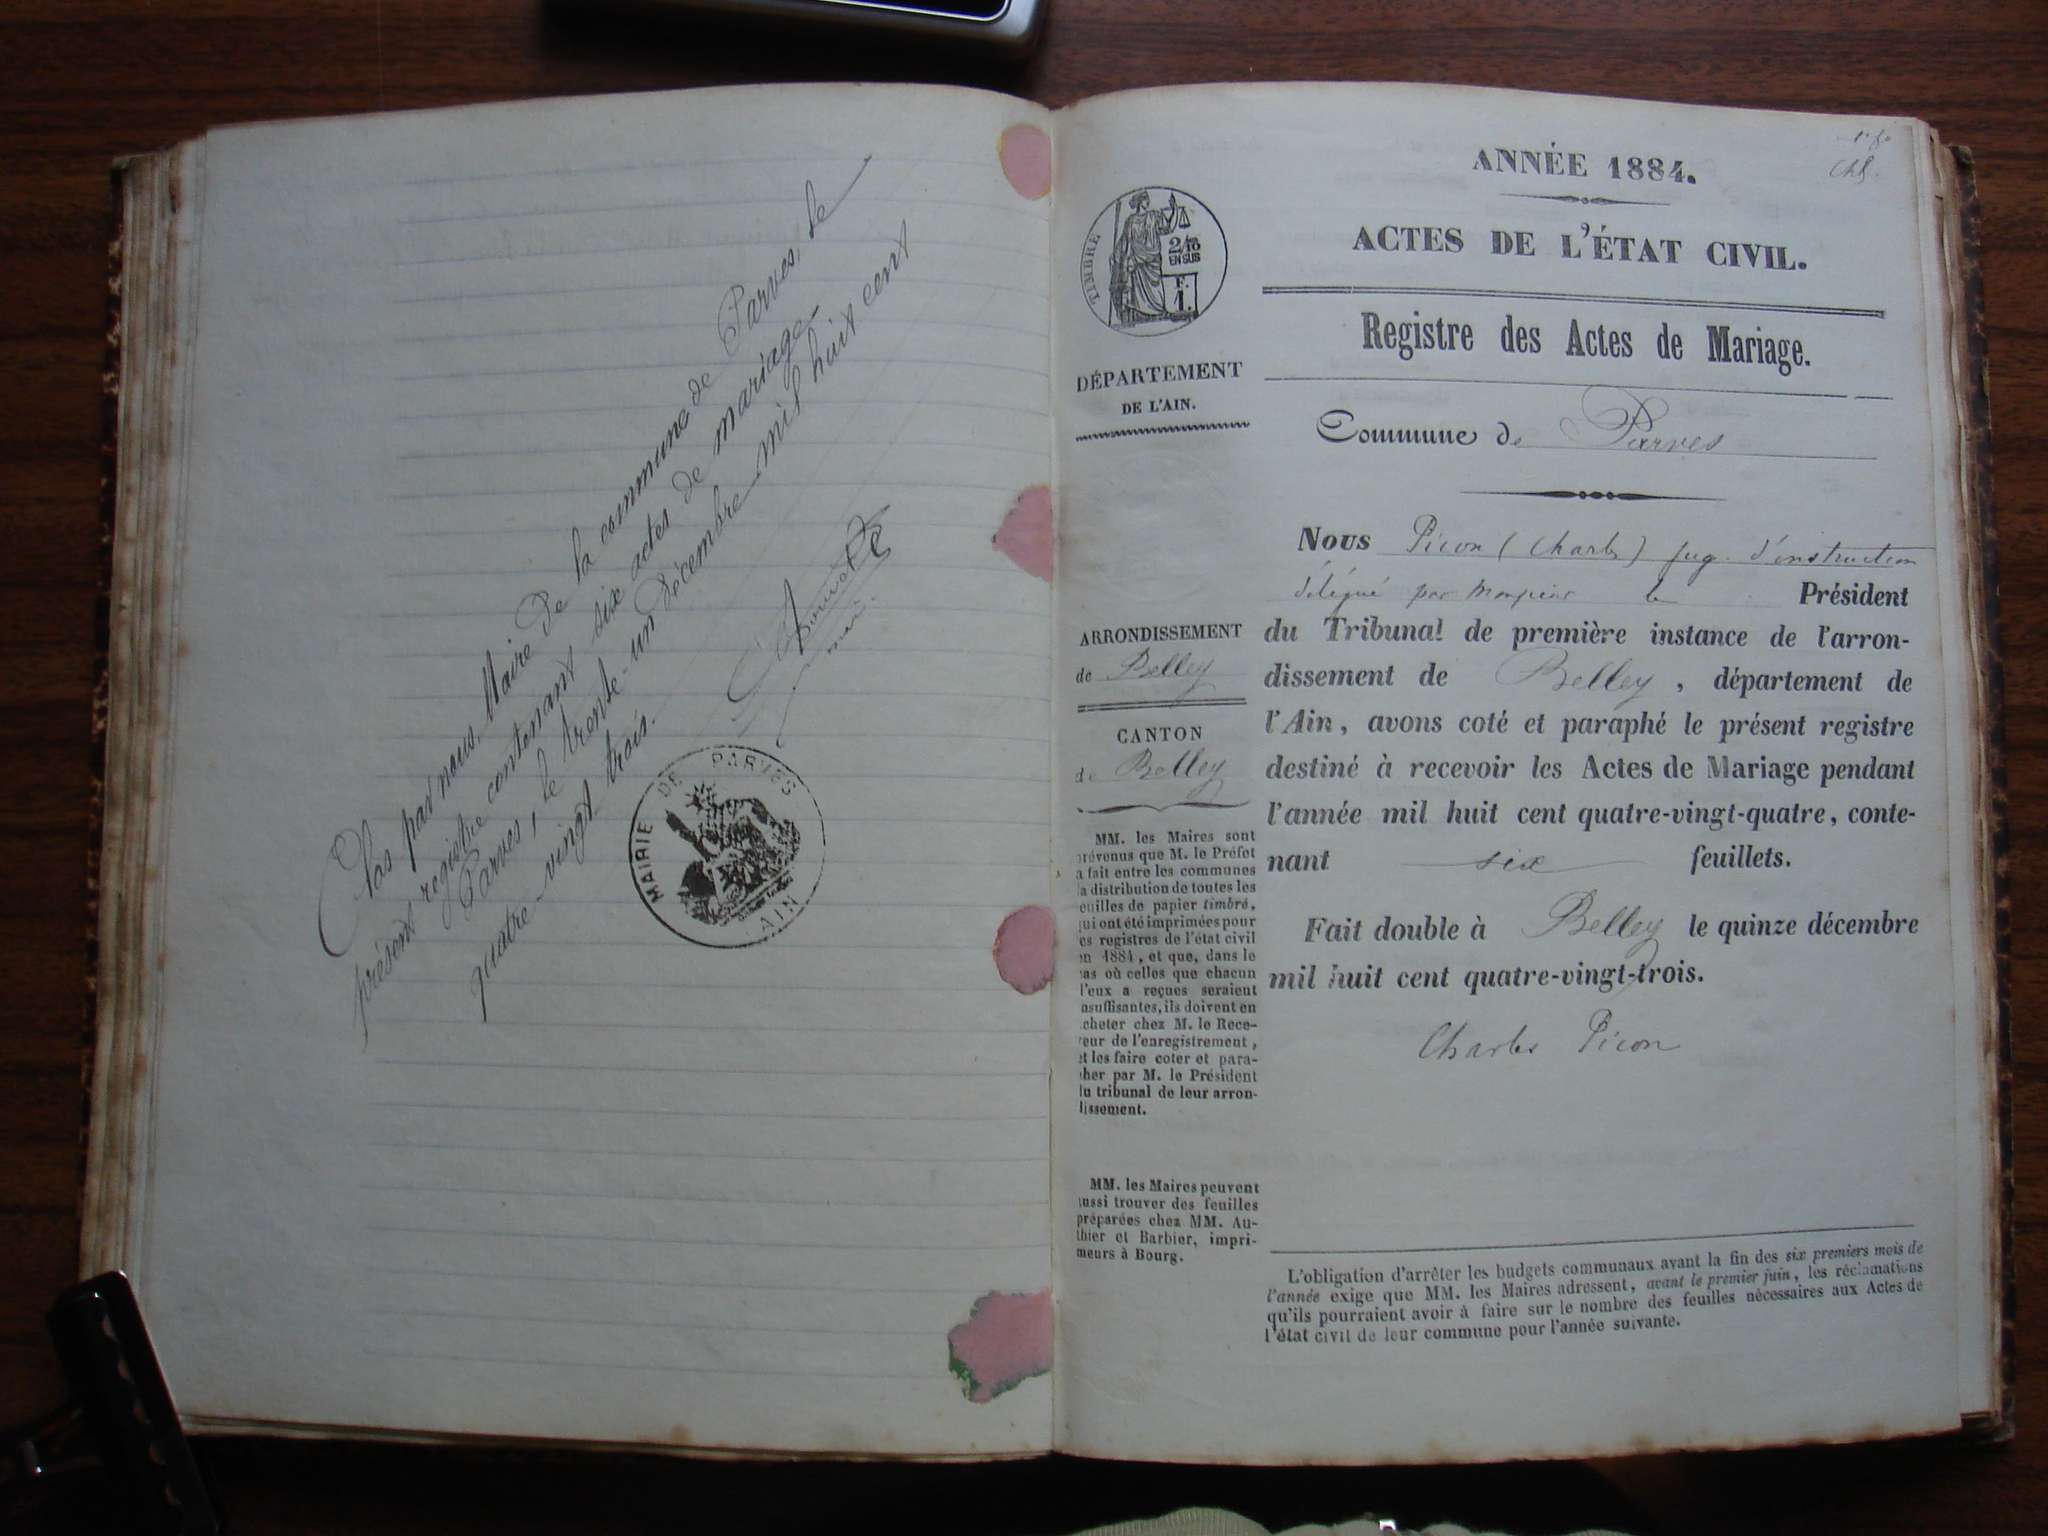 Clos par nous, Maire de la commune de Parves, le
présent registre contenant six actes de mariage.
Parves, le trente-un décembre mil huit cent
quatre-vingt trois.
MAIRIE DE PARVES
AIN
1er fo
Ch P.
ANNÉE 1884.
ACTES DE L'ÉTAT CIVIL.
Registre des Actes de Mariage.
Commune de Parves
Nous Picon (Charles) juge d'instruction
délégué par Monsieur le Président
du Tribunal de première instance de l'arron-
dissement de Belley, département de
l'Ain, avons coté et paraphé le présent registre
destiné à recevoir les Actes de Mariage pendant
l'année mil huit cent quatre-vingt-quatre, conte-
nant six feuillets.
Fait double à Belley le quinze décembre
mil huit cent quatre-vingt-trois.
Charles Picon
TIMBRE
2/10
EN SUS
F.
1.
DÉPARTEMENT
DE L'AIN.
ARRONDISSEMENT
de Belley
CANTON
de Belley
MM. les Maires sont
prévenus que M. le Préfet
a fait entre les communes
la distribution de toutes les
feuilles de papier timbré,
qui ont été imprimées pour
les registres de l'état civil
en 1884, et que, dans le
cas où celles que chacun
d'eux a reçues seraient
insuffisantes, ils doivent en
acheter chez M. le Rece-
veur de l'enregistrement,
et les faire coter et para-
pher par M. le Président
du tribunal de leur arron-
dissement.
MM. les Maires peuvent
aussi trouver des feuilles
préparées chez MM. Au-
thier et Barbier, impri-
meurs à Bourg.
L'obligation d'arrêter les budgets communaux avant la fin des six premiers mois de
l'année exige que MM. les Maires adressent, avant le premier juin, les réclamations
qu'ils pourraient avoir à faire sur le nombre des feuilles nécessaires aux Actes de
l'état civil de leur commune pour l'année suivante.